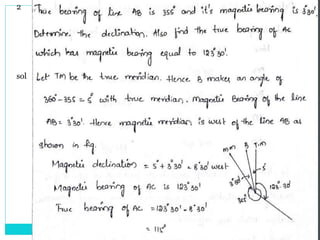 2 True bearing of line AB is 355° and it's magnetic bearing is 3°30'.
Determine the declination. Also find the true bearing of AC
which has magnetic bearing equal to 123°30'.
sol Let TM be the true meridian. Hence B makes an angle of
360°-355 = 5° with true meridian. Magnetic Bearing of the line
AB = 3°30'. Hence magnetic meridian is west of the line AB as
shown in fig.
Magnetic declination = 5°+3°30' = 8°30' west
Magnetic bearing of AC is 123°30'
True bearing of AC = 123°30' - 8°30'
= 115°
M.M B T.M
3°30' 5°
123°30'